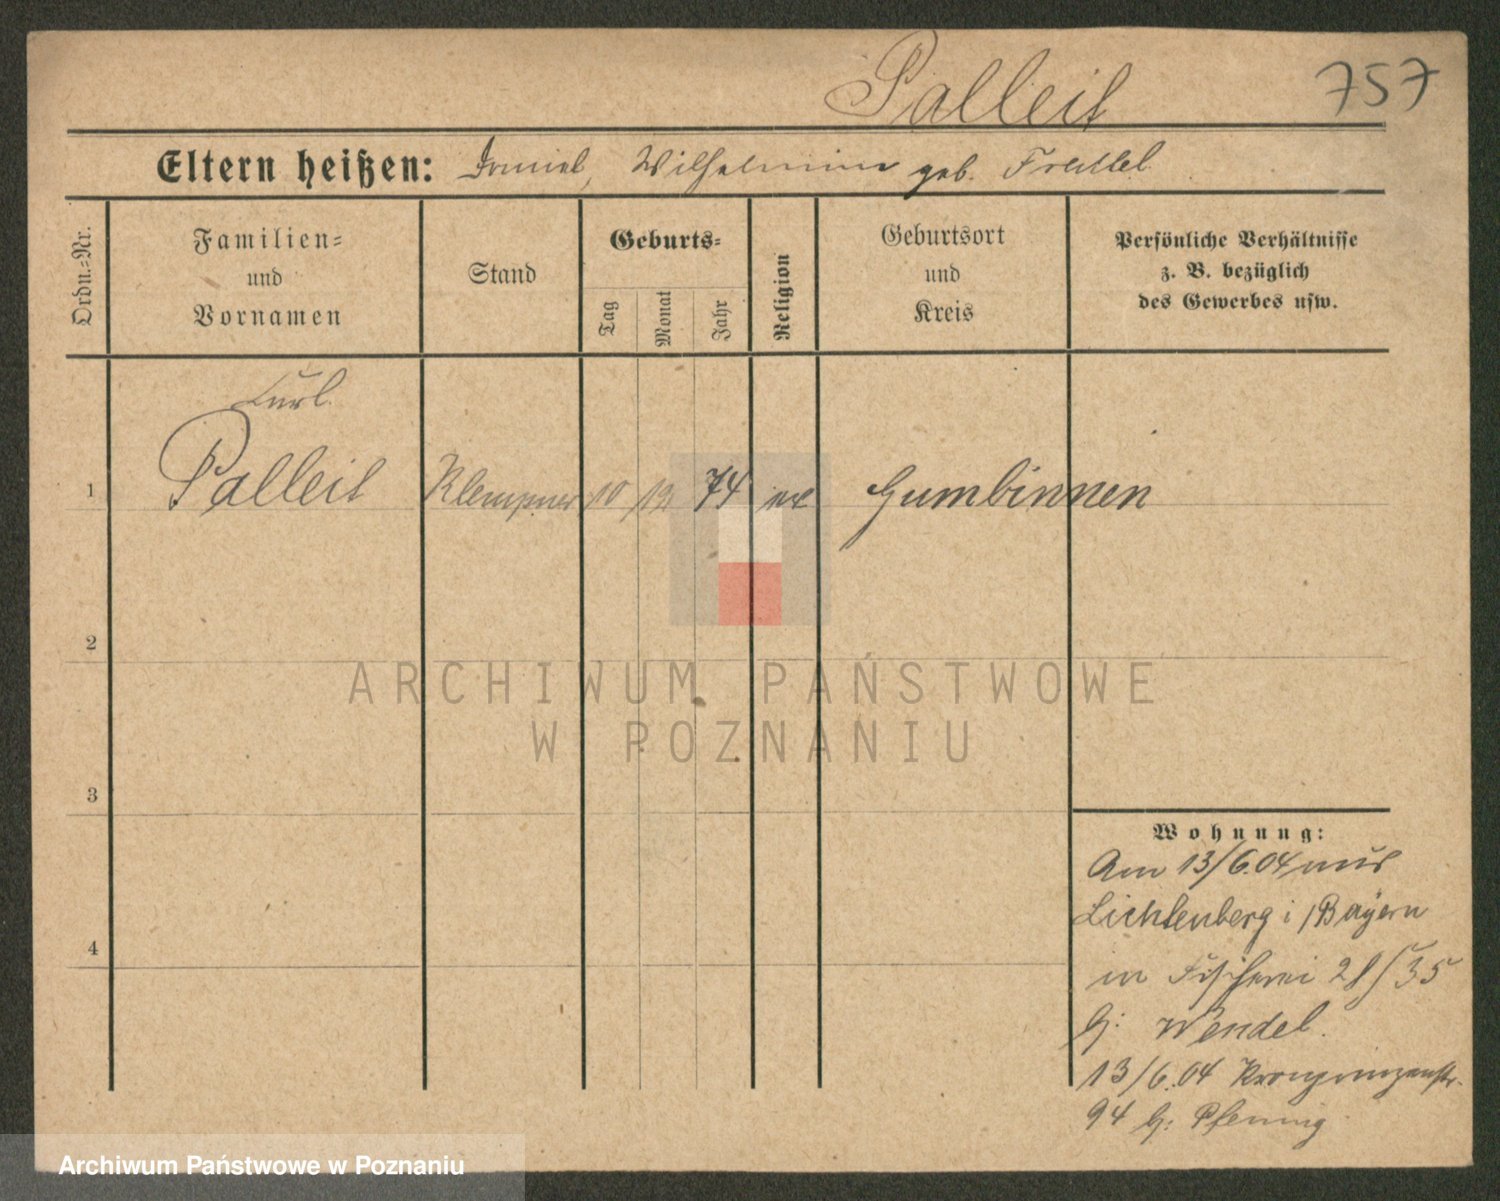 Palleit 757
Eltern heißen: Daniel, Wilhelmine geb.
Ordn.=Nr.
Familien=
und
Vornamen
Stand
Geburts=
Tag
Monat
Jahr
Religion
Geburtsort
und
Kreis
Persönliche Verhältnisse
z. B. bezüglich
des Gewerbes usw.
Carl
1 Palleit Klempner 10 12 74 Gumbinnen
2
3
4
Wohnung:
Am 13/6.04 aus
Lichtenberg i/Bayern
in Fischerei
b: Wendel.
13/6.04 Kronprinzenstr.
94 b: Pfennig
ARCHIWUM PAŃSTWOWE
W POZNANIU
Archiwum Państwowe w Poznaniu